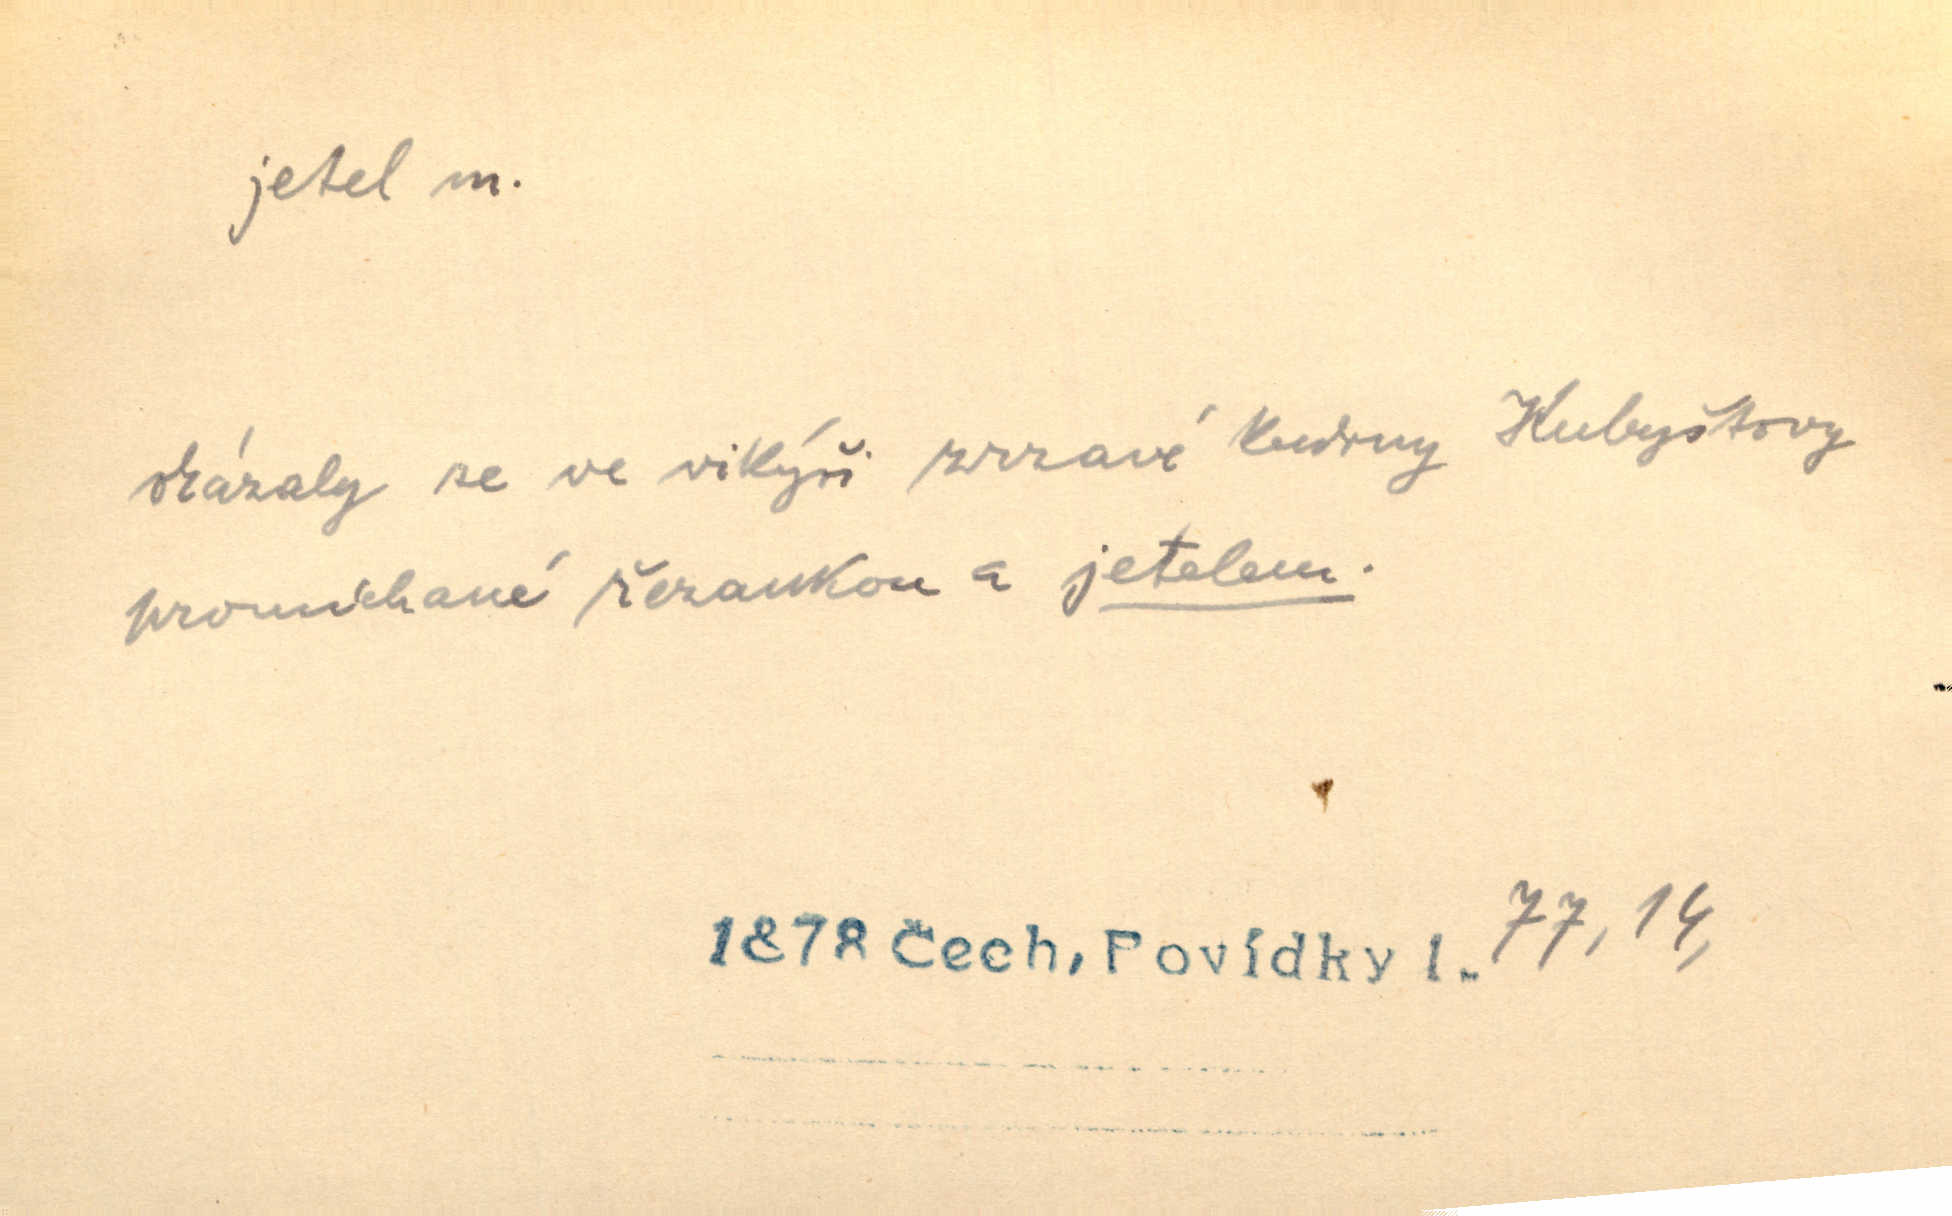 jetel m.
ukázaly se ve vikýři zrzavé kudrny Kubyštovy
promíchané řezankou a jetelem.
1878 Čech, Povídky I. 77, 14,